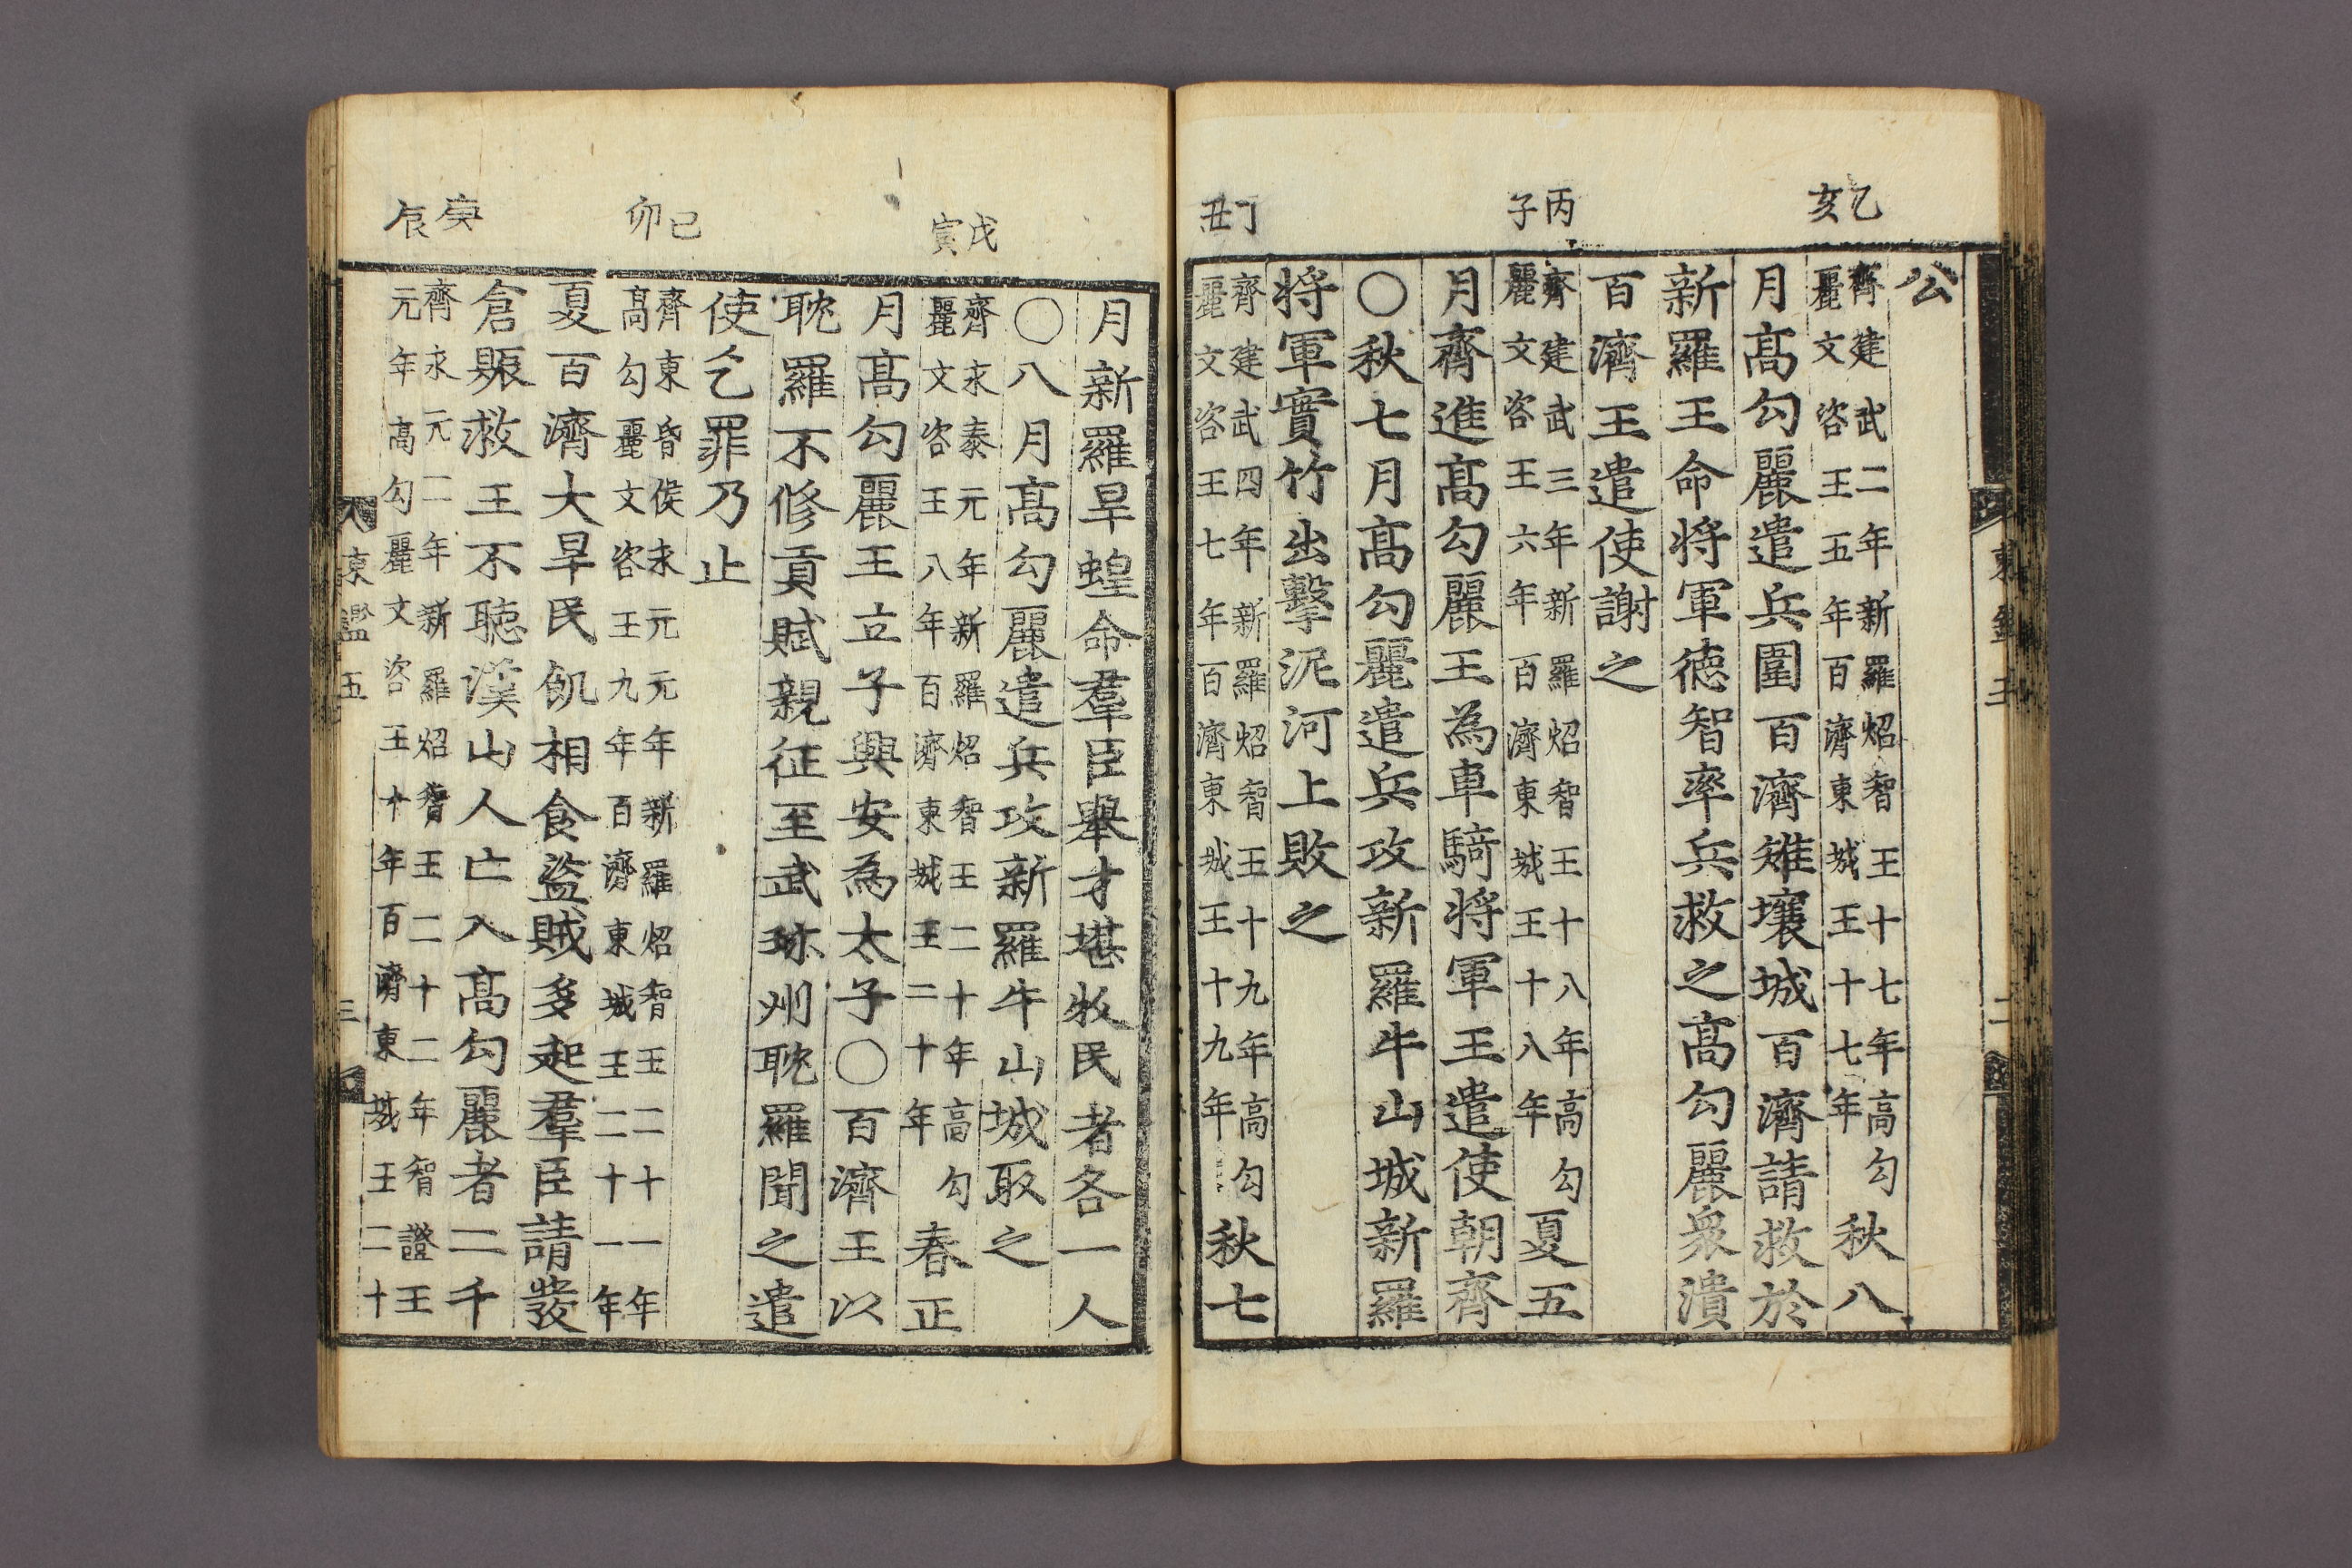 乙亥
丙子
丁丑
公
齊建武二年新羅炤智王十七年高勾
麗文咨王五年百濟東城王十七年
秋八
月高勾麗遣兵圍百濟雉壤城百濟請救於
新羅王命將軍德智率兵救之高勾麗衆潰
百濟王遣使謝之
齊建武三年新羅炤智王十八年高勾
麗文咨王六年百濟東城王十八年
夏五
月齊進高勾麗王為車騎將軍王遣使朝齊
○秋七月高勾麗遣兵攻新羅牛山城新羅
將軍實竹出擊泥河上敗之
齊建武四年新羅炤智王十九年高勾
麗文咨王七年百濟東城王十九年
秋七
戊寅
己卯
庚辰
月新羅旱蝗命羣臣舉才堪牧民者各一人
○八月高勾麗遣兵攻新羅牛山城取之
齊永泰元年新羅炤智王二十年高勾
麗文咨王八年百濟東城王二十年
春正
月高勾麗王立子興安為太子○百濟王以
耽羅不修貢賦親征至武珎州耽羅聞之遣
使乞罪乃止
齊東昏侯永元元年新羅炤智王二十一年
高勾麗文咨王九年百濟東城王二十一年
夏百濟大旱民飢相食盜賊多起羣臣請發
倉賑救王不聽漢山人亡入高勾麗者二千
齊永元二年新羅炤智王二十二年智證王
元年高勾麗文咨王十年百濟東城王二十
東鑑五
三